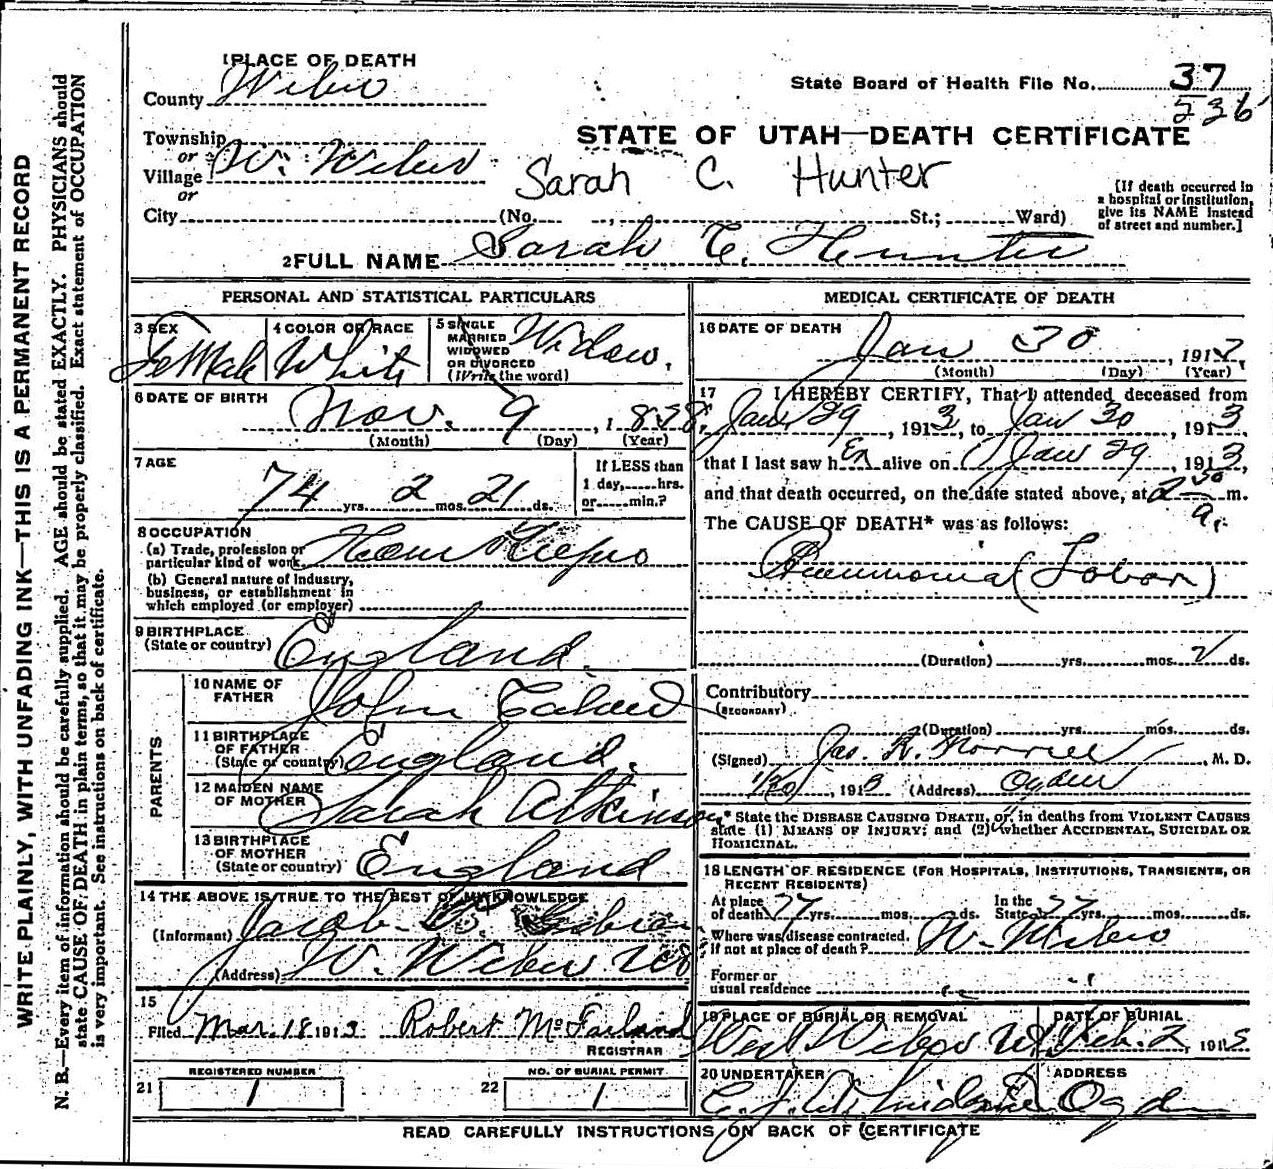 1 PLACE OF DEATH
County Weber
State Board of Health File No. 37
536
Township
or
Village W. Weber
or
STATE OF UTAH—DEATH CERTIFICATE
Sarah C. Hunter
City (No. , St.; Ward)
[If death occurred in
a hospital or institution,
give its NAME instead
of street and number.]
2 FULL NAME Sarah C. Hunter
PERSONAL AND STATISTICAL PARTICULARS
3 SEX
FeMale
4 COLOR OR RACE
White
5 SINGLE
MARRIED
WIDOWED
OR DIVORCED
(Write the word)
Widow.
6 DATE OF BIRTH
Nov. 9, 1838.
(Month) (Day) (Year)
7 AGE
74 yrs. 2 mos. 21 ds.
If LESS than
1 day, hrs.
or min.?
8 OCCUPATION
(a) Trade, profession or
particular kind of work
(b) General nature of industry,
business, or establishment in
which employed (or employer)
9 BIRTHPLACE
(State or country) England.
PARENTS
10 NAME OF
FATHER John
11 BIRTHPLACE
OF FATHER
(State or country) England.
12 MAIDEN NAME
OF MOTHER Sarah Atkinson
13 BIRTHPLACE
OF MOTHER
(State or country) England
14 THE ABOVE IS TRUE TO THE BEST OF MY KNOWLEDGE
(Informant) Jacob
(Address) W. Weber
15
Filed Mar. 18 1913 Robert McFarland
REGISTRAR
21 REGISTERED NUMBER
1
22 NO. OF BURIAL PERMIT
1
MEDICAL CERTIFICATE OF DEATH
16 DATE OF DEATH
Jan 30, 1913,
(Month) (Day) (Year)
17 I HEREBY CERTIFY, That I attended deceased from
Jan 29, 1913, to Jan 30, 1913,
that I last saw h er alive on Jan 29, 1913,
and that death occurred, on the date stated above, at 2 30 a. m.
The CAUSE OF DEATH* was as follows:
Pneumonia (Lobar)
(Duration) yrs. mos. 2 ds.
Contributory
(SECONDARY)
(Duration) yrs. mos. ds.
(Signed) Jas. R. Morrell, M. D.
1/30, 1913 (Address) Ogden
* State the DISEASE CAUSING DEATH, or, in deaths from VIOLENT CAUSES
state (1) MEANS OF INJURY; and (2) whether ACCIDENTAL, SUICIDAL OR
HOMICIDAL.
18 LENGTH OF RESIDENCE (FOR HOSPITALS, INSTITUTIONS, TRANSIENTS, OR
RECENT RESIDENTS)
At place
of death yrs. mos. ds.
In the
State yrs. mos. ds.
Where was disease contracted,
if not at place of death? W. Weber
Former or
usual residence
19 PLACE OF BURIAL OR REMOVAL
West Weber
DATE OF BURIAL
Feb. 2, 1913
20 UNDERTAKER
ADDRESS
Ogden
READ CAREFULLY INSTRUCTIONS ON BACK OF CERTIFICATE
WRITE PLAINLY, WITH UNFADING INK—THIS IS A PERMANENT RECORD
N. B.—Every item of information should be carefully supplied. AGE should be stated EXACTLY. PHYSICIANS should
state CAUSE OF DEATH in plain terms, so that it may be properly classified. Exact statement of OCCUPATION
is very important. See instructions on back of certificate.